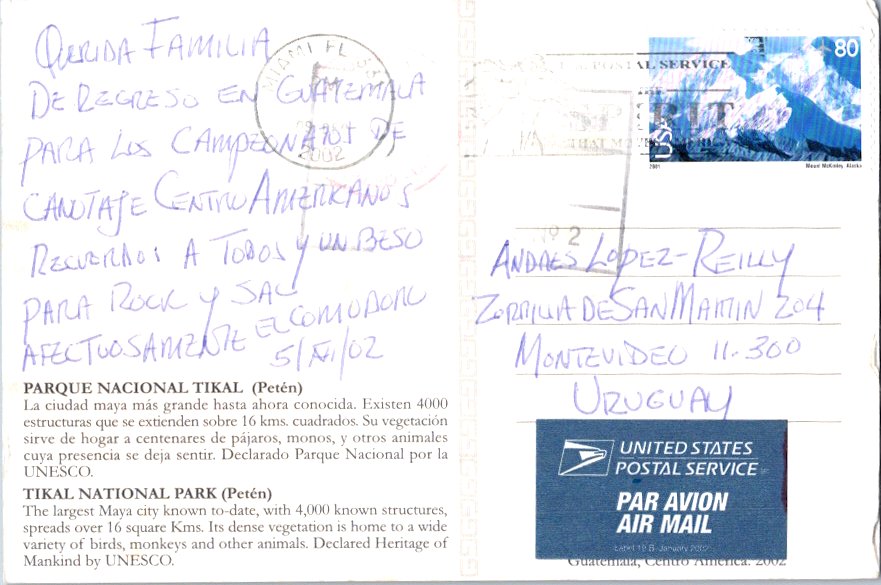 Querida Familia
De Regreso en Guatemala
para los Campeonatos de
Canotaje Centro Americanos
Recuerdos a Todos y un Beso
para Rock y Sal
Afectuosamente El Comodoro
5/XI/02
PARQUE NACIONAL TIKAL (Petén)
La ciudad maya más grande hasta ahora conocida. Existen 4000
estructuras que se extienden sobre 16 kms. cuadrados. Su vegetación
sirve de hogar a centenares de pájaros, monos, y otros animales
cuya presencia se deja sentir. Declarado Parque Nacional por la
UNESCO.
TIKAL NATIONAL PARK (Petén)
The largest Maya city known to-date, with 4,000 known structures,
spreads over 16 square Kms. Its dense vegetation is home to a wide
variety of birds, monkeys and other animals. Declared Heritage of
Mankind by UNESCO.
MIAMI FL
PM
2002
POSTAL SERVICE
80
USA
2001
Mount McKinley, Alaska
Nº 2
Andres Lopez-Reilly
Zorrilla de San Martin 204
Montevideo 11.300
Uruguay
UNITED STATES
POSTAL SERVICE
PAR AVION
AIR MAIL
Label 19-B, January 2002
Guatemala, Centro America. 2002